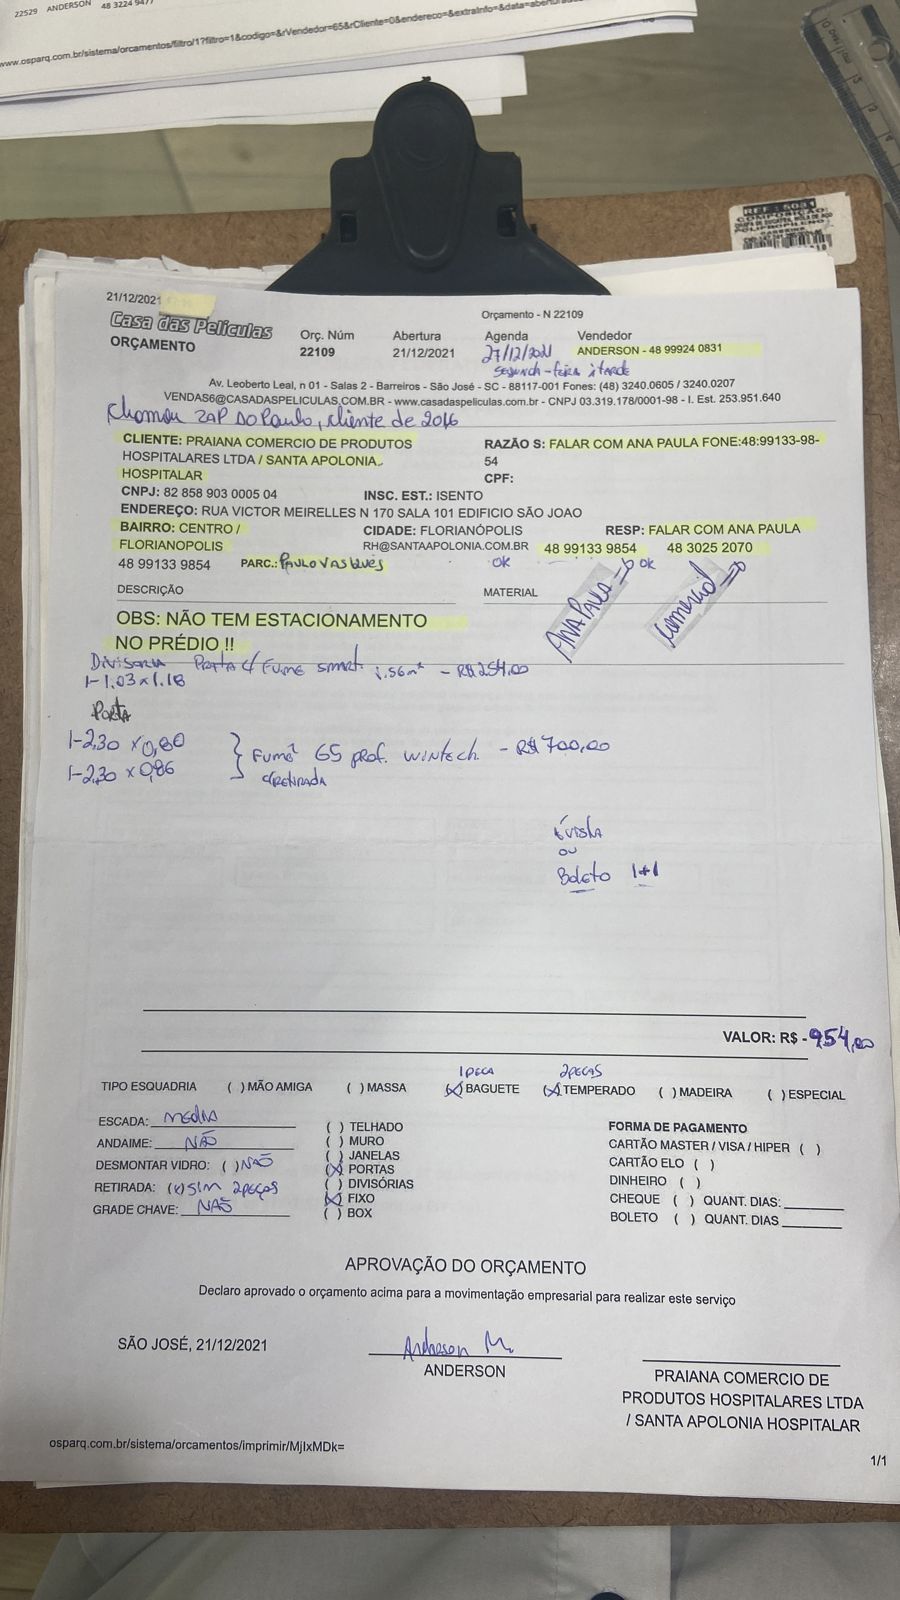 22529 ANDERSON 48 3224 9477
www.osparq.com.br/sistema/orcamentos/filtro/1?filtro=1&codigo=&rVendedor=65&rCliente=0&endereco=&extraInfo=&data=abertura
REF: 5031
COMPOSIÇÃO:
POLIPROPILENO
21/12/2021
Orçamento - N 22109
Casa das Películas
ORÇAMENTO
Orç. Núm Abertura Agenda Vendedor
22109 21/12/2021 27/12/2021 ANDERSON - 48 99924 0831
SEGUNDA-FEIRA À TARDE
Av. Leoberto Leal, n 01 - Salas 2 - Barreiros - São José - SC - 88117-001 Fones: (48) 3240.0605 / 3240.0207
VENDAS6@CASADASPELICULAS.COM.BR - www.casadaspeliculas.com.br - CNPJ 03.319.178/0001-98 - I. Est. 253.951.640
Chamou ZAP DO Paulo, cliente de 2016
CLIENTE: PRAIANA COMERCIO DE PRODUTOS
HOSPITALARES LTDA / SANTA APOLONIA
HOSPITALAR
RAZÃO S: FALAR COM ANA PAULA FONE:48:99133-98-
54
CPF:
CNPJ: 82 858 903 0005 04 INSC. EST.: ISENTO
ENDEREÇO: RUA VICTOR MEIRELLES N 170 SALA 101 EDIFICIO SÃO JOAO
BAIRRO: CENTRO / CIDADE: FLORIANÓPOLIS RESP: FALAR COM ANA PAULA
FLORIANOPOLIS RH@SANTAAPOLONIA.COM.BR 48 99133 9854 48 3025 2070
48 99133 9854 PARC.: PAULO VASQUES OK OK
DESCRIÇÃO MATERIAL
ANA PAULA
Comercial
OBS: NÃO TEM ESTACIONAMENTO
NO PRÉDIO !!
DIVISORIA PRATA C/ FUMÊ SMART. 1.56m² - R$254,00
1-1.03x1.18
PORTA
1-2,30 x 0,80
1-2,30 x 0,86
FUMÊ G5 prof. WINTECH. - R$ 700,00
C/RETIRADA
À vista
ou
Boleto 1+1
VALOR: R$ - 954,00
1 PEÇA 2 PEÇAS
TIPO ESQUADRIA ( ) MÃO AMIGA ( ) MASSA (X) BAGUETE (X) TEMPERADO ( ) MADEIRA ( ) ESPECIAL
ESCADA: MEDIA
ANDAIME: NÃO
DESMONTAR VIDRO: ( ) NÃO
RETIRADA: (X) SIM 2 PEÇAS
GRADE CHAVE: NÃO
( ) TELHADO
( ) MURO
( ) JANELAS
(X) PORTAS
( ) DIVISÓRIAS
(X) FIXO
( ) BOX
FORMA DE PAGAMENTO
CARTÃO MASTER / VISA / HIPER ( )
CARTÃO ELO ( )
DINHEIRO ( )
CHEQUE ( ) QUANT. DIAS:
BOLETO ( ) QUANT. DIAS
APROVAÇÃO DO ORÇAMENTO
Declaro aprovado o orçamento acima para a movimentação empresarial para realizar este serviço
SÃO JOSÉ, 21/12/2021
Anderson M.
ANDERSON
PRAIANA COMERCIO DE
PRODUTOS HOSPITALARES LTDA
/ SANTA APOLONIA HOSPITALAR
osparq.com.br/sistema/orcamentos/imprimir/MjIxMDk=
1/1